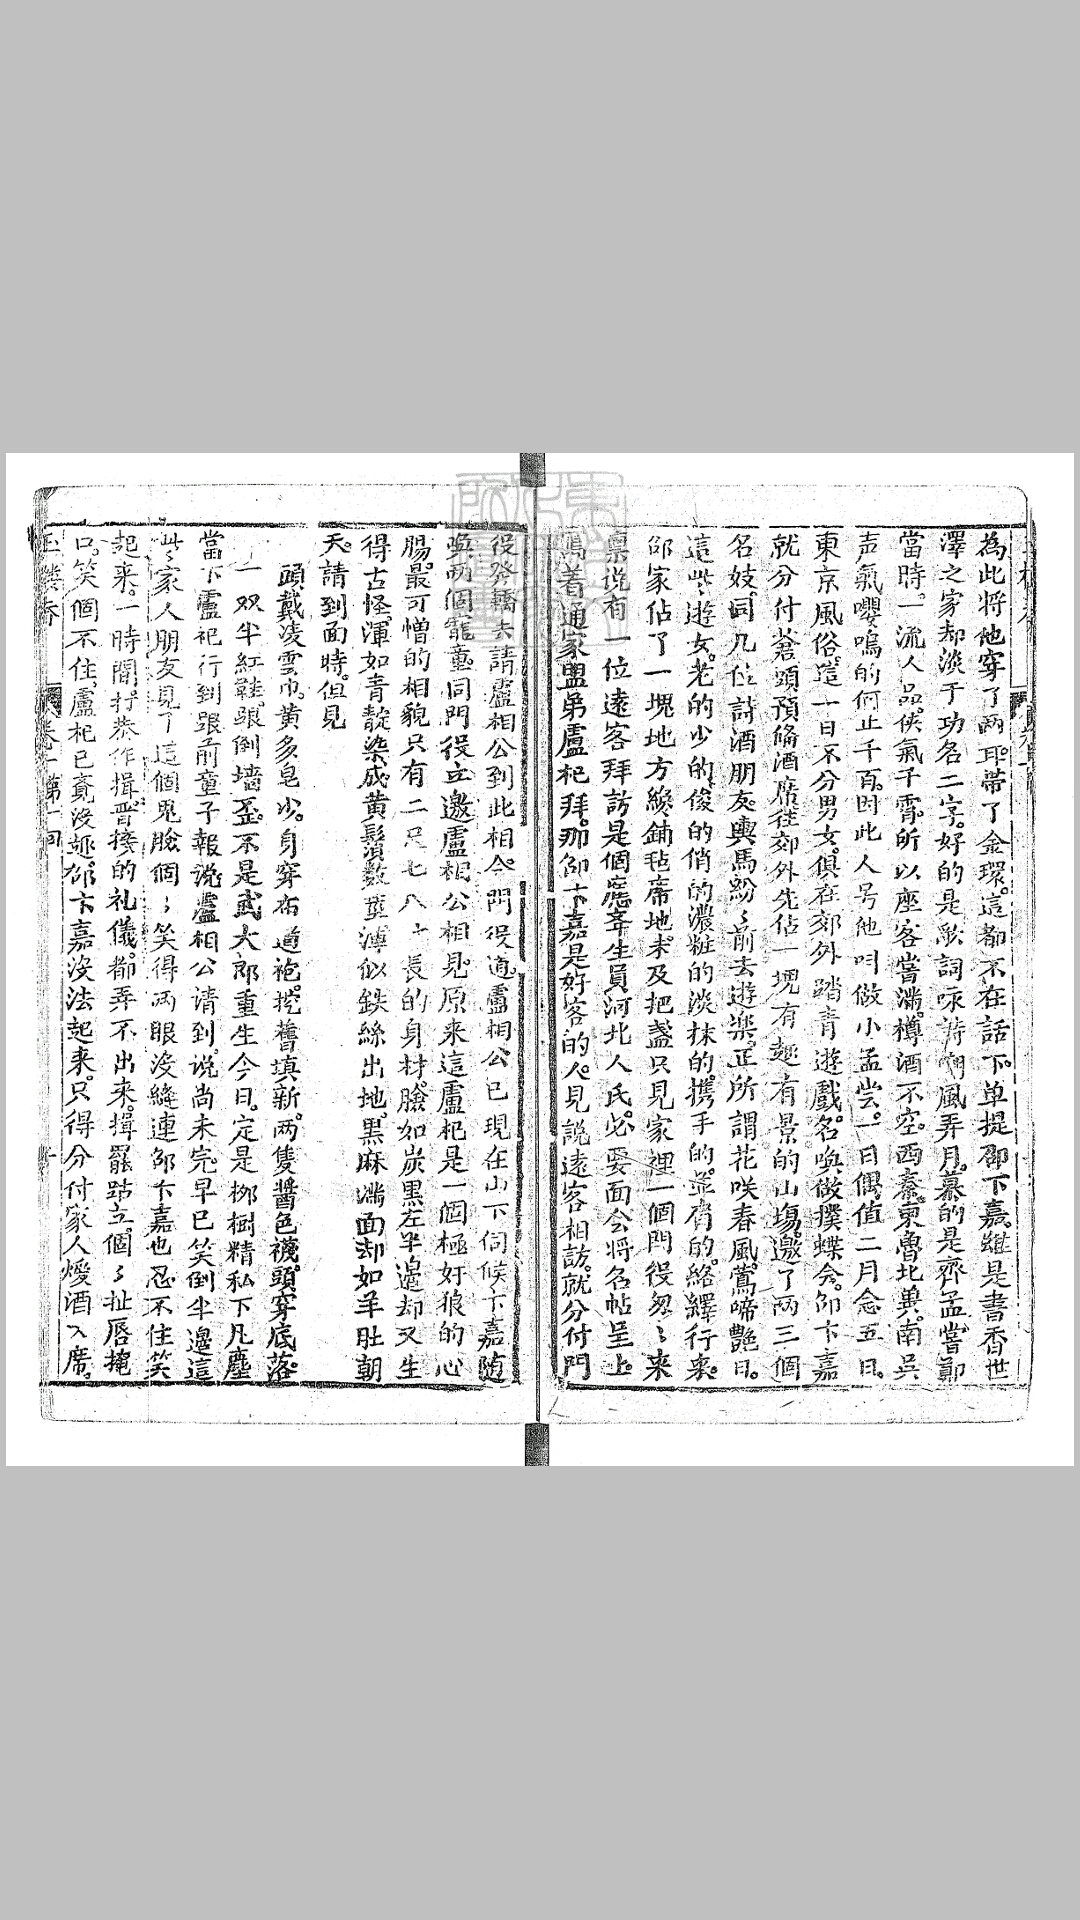 為此將他穿了兩耳帶了金環。這都不在話下。单提邵卞嘉。継是書香世
澤之家却淡于功名二字。好的是歌詞咏詩嘲風弄月。慕的是齊孟嘗鄭
當時。一流人品。俠氣干霄。所以座客嘗滿。樽酒不空。西秦。東魯北冀。南吳
声氣嚶鳴的何止千百。因此人号他叫做小孟尝。一日偶值二月念五日。
東京風俗。這一日不分男女。俱在郊外踏青遊戲。名喚做撲蝶会。邵卞嘉
就分付蒼頭預俻酒席往郊外先佔一塊有趣有景的山塲。邀了兩三個
名妓。同几位詩酒朋友。輿馬紛〻前去遊樂。正所謂花咲春風。鶯啼艷日。
這些〻遊女。老的少的。俊的俏的濃粧的淡抹的。携手的。並肩的。絡繹行来。
邵家佔了一塊地方纔鋪毡席地。未及把盞只見家裡一個門役忽〻来
禀說有一位遠客拜訪是個廩生員河北人氏。必要面会将名帖呈上。
寫着通家盟弟盧杞拜。那邵卞嘉是好客的人。見說遠客相訪。就分付門
役發轎去請盧相公到此相会。門役道。盧相公已現在山下伺候卞嘉随
喚两個寵童。同門役立邀盧相公相見。原来這盧杞是一個極奸狼的心
腸。最可憎的相貌只有二尺七八寸長的身材。臉如炭黒左半邉却又生
得古怪。渾如青靛染成黄鬚数莖溥似鉄絲出地。黒麻滿面却如羊肚朝
天。請到面時。但見
頭戴凌雲巾。黄多皂少。身穿布道袍。挖舊填新。两隻醬色襪頭。穿底落。
一双半紅鞋。跟倒墙歪。不是武大郎重生今日。定是栁樹精私下凡塵
當下盧杞行到跟前童子報說盧相公请到。说尚未完。早已笑倒半邉這
些〻家人朋友見了這個鬼臉個〻笑得两眼没縫連邵卞嘉也忍不住笑
起来。一時間打恭作揖。晋接的礼儀。都弄不出来。揖罷站立。個〻扯唇掩
口。笑個不住盧杞已竟没趣。邵卞嘉没法起来。只得分付家人煖酒入席。
卷一第一回